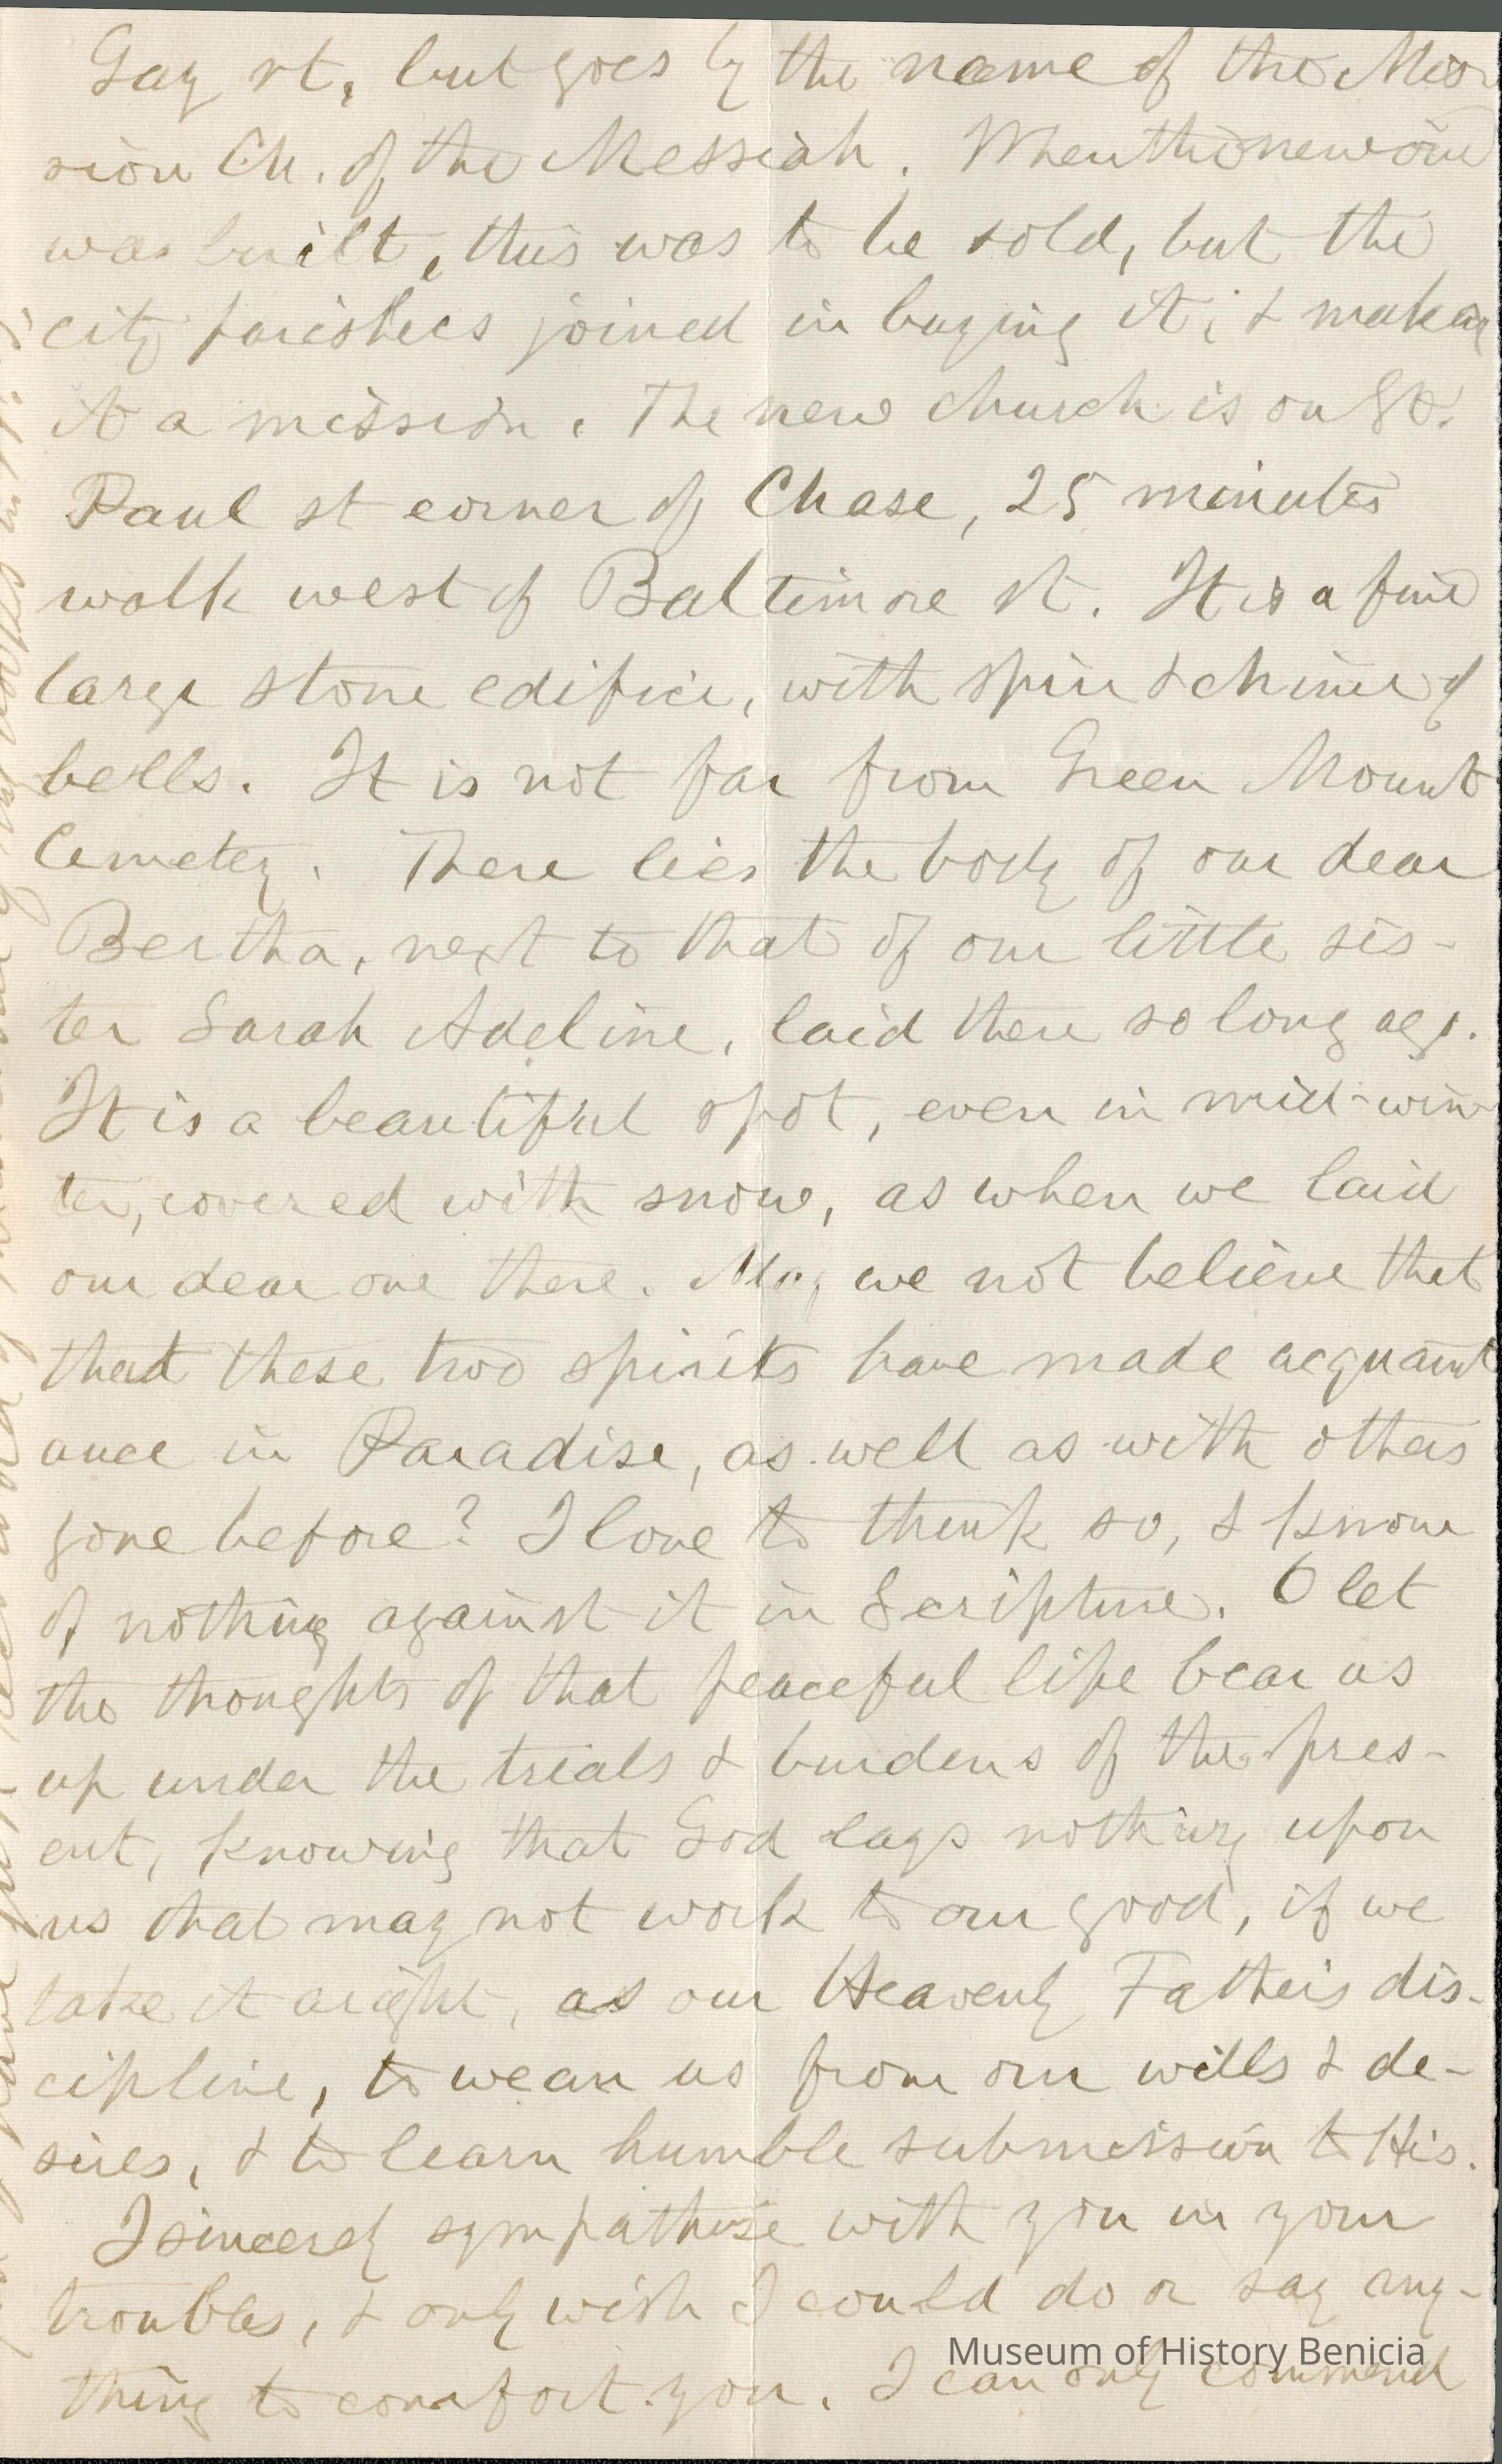 Gay st, but goes by the name of the Mis
sion Ch. of the Messiah. When the new one
was built, this was to be sold, but the
city parishes joined in buying it, & making
it a mission. The new church is on St.
Paul st corner of Chase, 25 minutes
walk west of Baltimore st. It is a fine
large stone edifice, with spire & chime of
bells. It is not far from Green Mount
Cemetery. There lies the body of our dear
Bertha, next to that of our little sis-
ter Sarah Adeline, laid there so long ago.
It is a beautiful spot, even in mid-win-
ter, covered with snow, as when we laid
our dear one there. May we not believe that
that these two spirits have made acquaint
ance in Paradise, as well as with others
gone before? I love to think so, & know
of nothing against it in Scripture. O let
the thoughts of that peaceful life bear us
up under the trials & burdens of the pres-
ent, knowing that God lays nothing upon
us that may not work to our good, if we
take it aright, as our Heavenly Father's dis-
cipline, to wean us from our wills & de-
sires, & to learn humble submission to His.
I sincerely sympathise with you in your
troubles, & only wish I could do or say any-
thing to comfort you. I can only commend
Museum of History Benicia